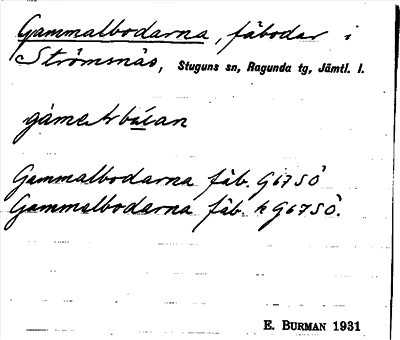 Gammalbodarna, fäbodar i
Strömsnäs, Stuguns sn, Ragunda tg, Jämtl. l.
Gammalbodarna fäb. G67SÖ
Gammalbodarna fäb. k G67SÖ.
E. BURMAN 1931